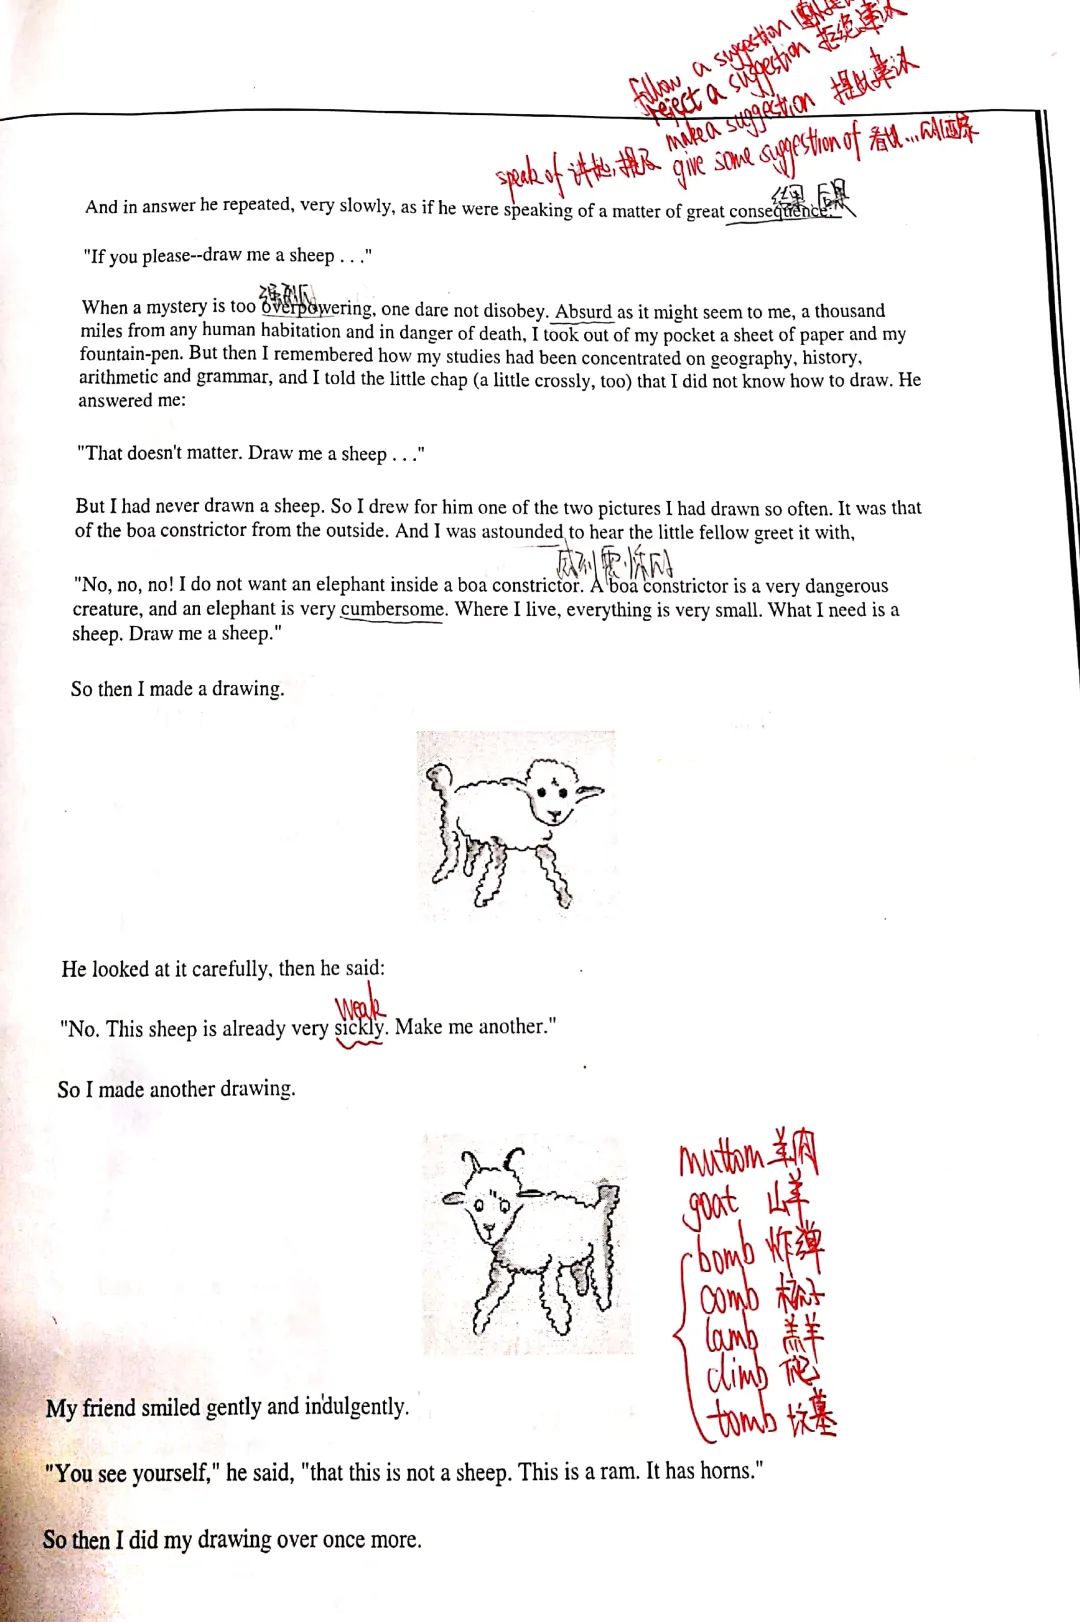 follow a suggestion
reject a suggestion 拒绝建议
make a suggestion 提出建议
speak of 讲起,提及 give some suggestion of 看出...
And in answer he repeated, very slowly, as if he were speaking of a matter of great consequence.
结果 后果
"If you please--draw me a sheep . . ."
强烈的
When a mystery is too overpowering, one dare not disobey. Absurd as it might seem to me, a thousand
miles from any human habitation and in danger of death, I took out of my pocket a sheet of paper and my
fountain-pen. But then I remembered how my studies had been concentrated on geography, history,
arithmetic and grammar, and I told the little chap (a little crossly, too) that I did not know how to draw. He
answered me:
"That doesn't matter. Draw me a sheep . . ."
But I had never drawn a sheep. So I drew for him one of the two pictures I had drawn so often. It was that
of the boa constrictor from the outside. And I was astounded to hear the little fellow greet it with,
感到震惊的
"No, no, no! I do not want an elephant inside a boa constrictor. A boa constrictor is a very dangerous
creature, and an elephant is very cumbersome. Where I live, everything is very small. What I need is a
sheep. Draw me a sheep."
So then I made a drawing.
He looked at it carefully, then he said:
weak
"No. This sheep is already very sickly. Make me another."
So I made another drawing.
muttom 羊肉
goat 山羊
bomb 炸弹
comb 梳子
lamb 羔羊
climb 爬
tomb 坟墓
My friend smiled gently and indulgently.
"You see yourself," he said, "that this is not a sheep. This is a ram. It has horns."
So then I did my drawing over once more.